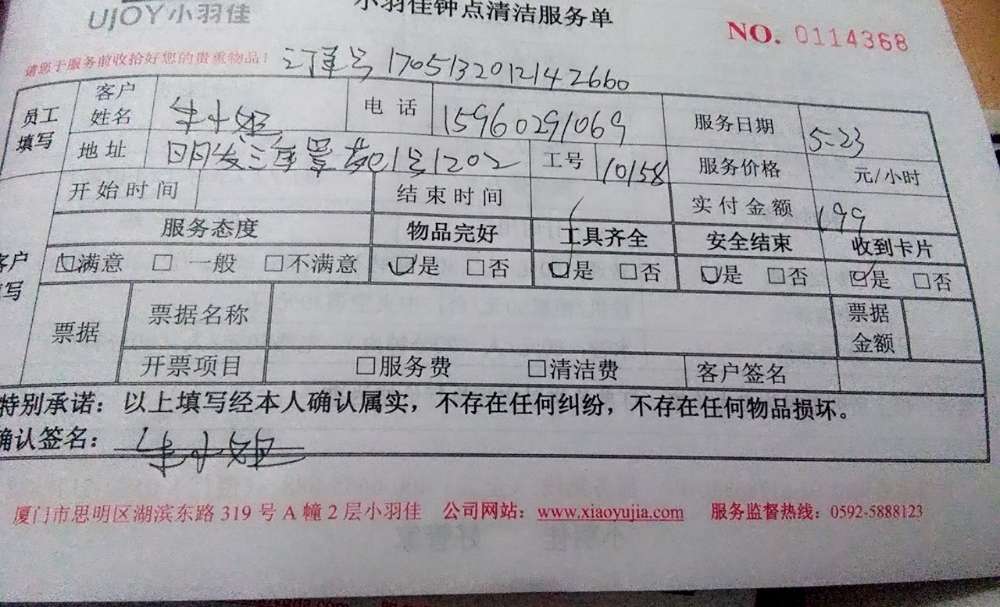 UJOY小羽佳
小羽佳钟点清洁服务单
NO. 0114368
请您于服务前收拾好您的贵重物品！
订单号 170513201214 2660
员工填写 客户姓名 朱小姐 电话 15960291069 服务日期 5.23
地址 明发 1号1202 工号 10158 服务价格 元/小时
开始时间 结束时间 实付金额 199
服务态度 物品完好 工具齐全 安全结束 收到卡片
客户填写 ☑满意 □一般 □不满意 ☑是 □否 ☑是 □否 ☑是 □否 ☑是 □否
票据 票据名称 票据金额
开票项目 □服务费 □清洁费 客户签名
特别承诺：以上填写经本人确认属实，不存在任何纠纷，不存在任何物品损坏。
确认签名：朱小姐
厦门市思明区湖滨东路 319 号 A 幢 2 层小羽佳 公司网站：www.xiaoyujia.com 服务监督热线：0592-5888123